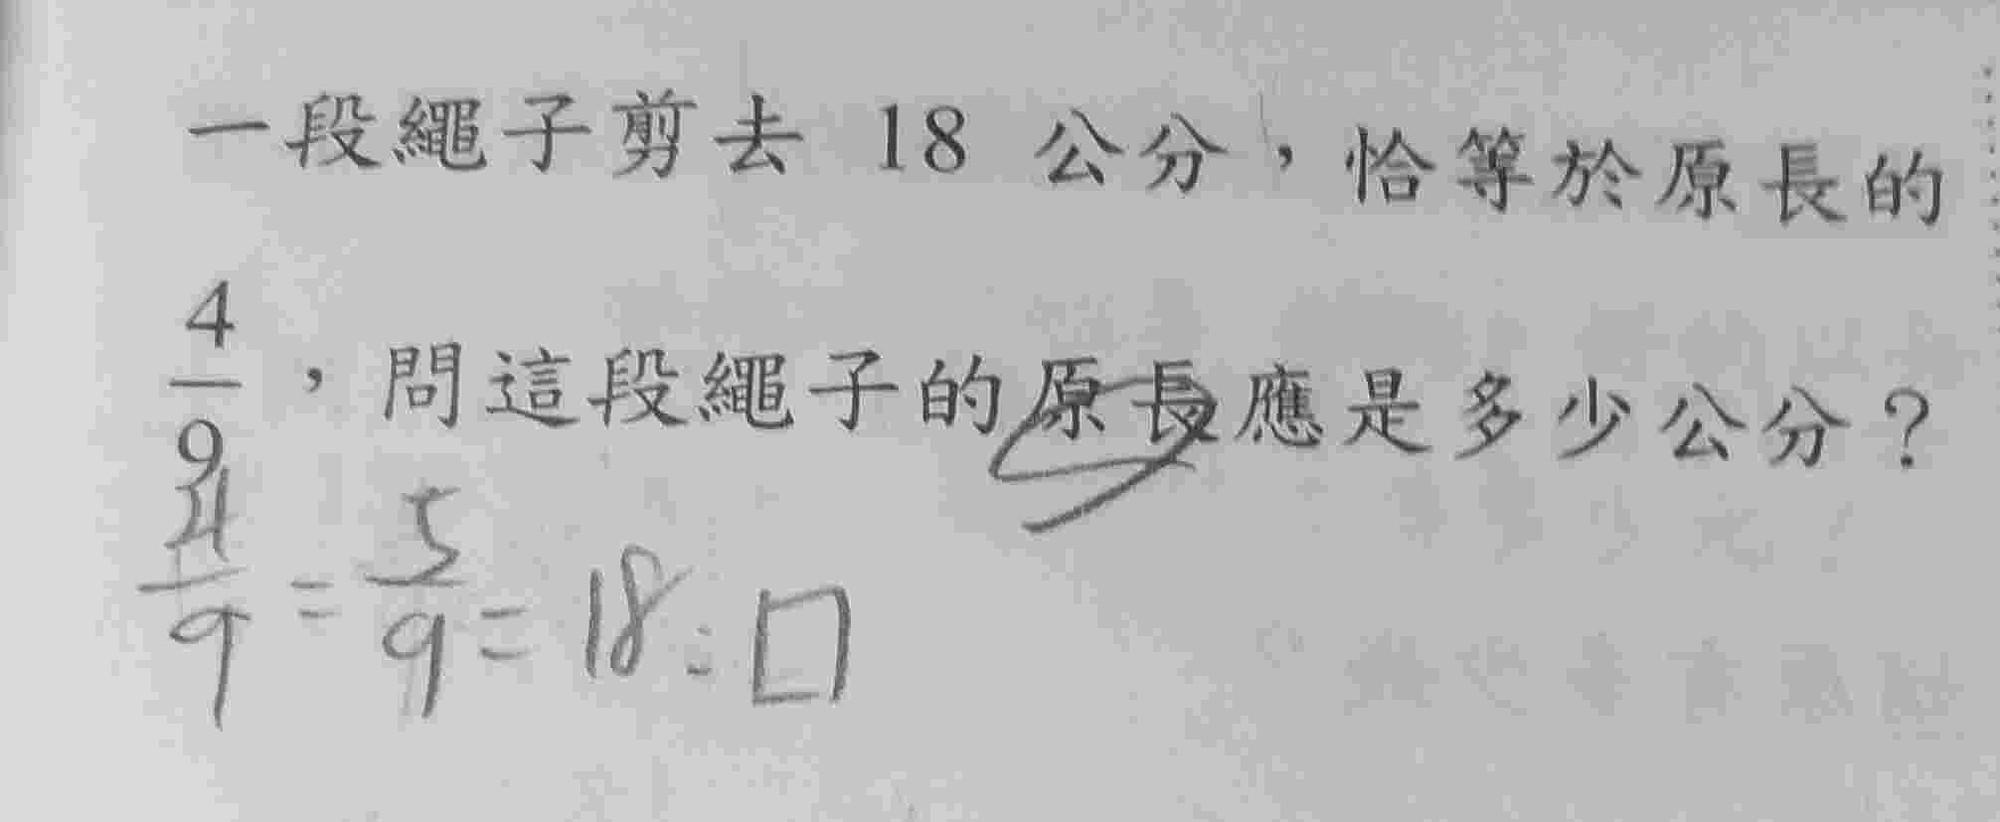 一段繩子剪去 18 公分，恰等於原長的
4/9，問這段繩子的原長應是多少公分？
4/9 = 5/9 = 18 : □